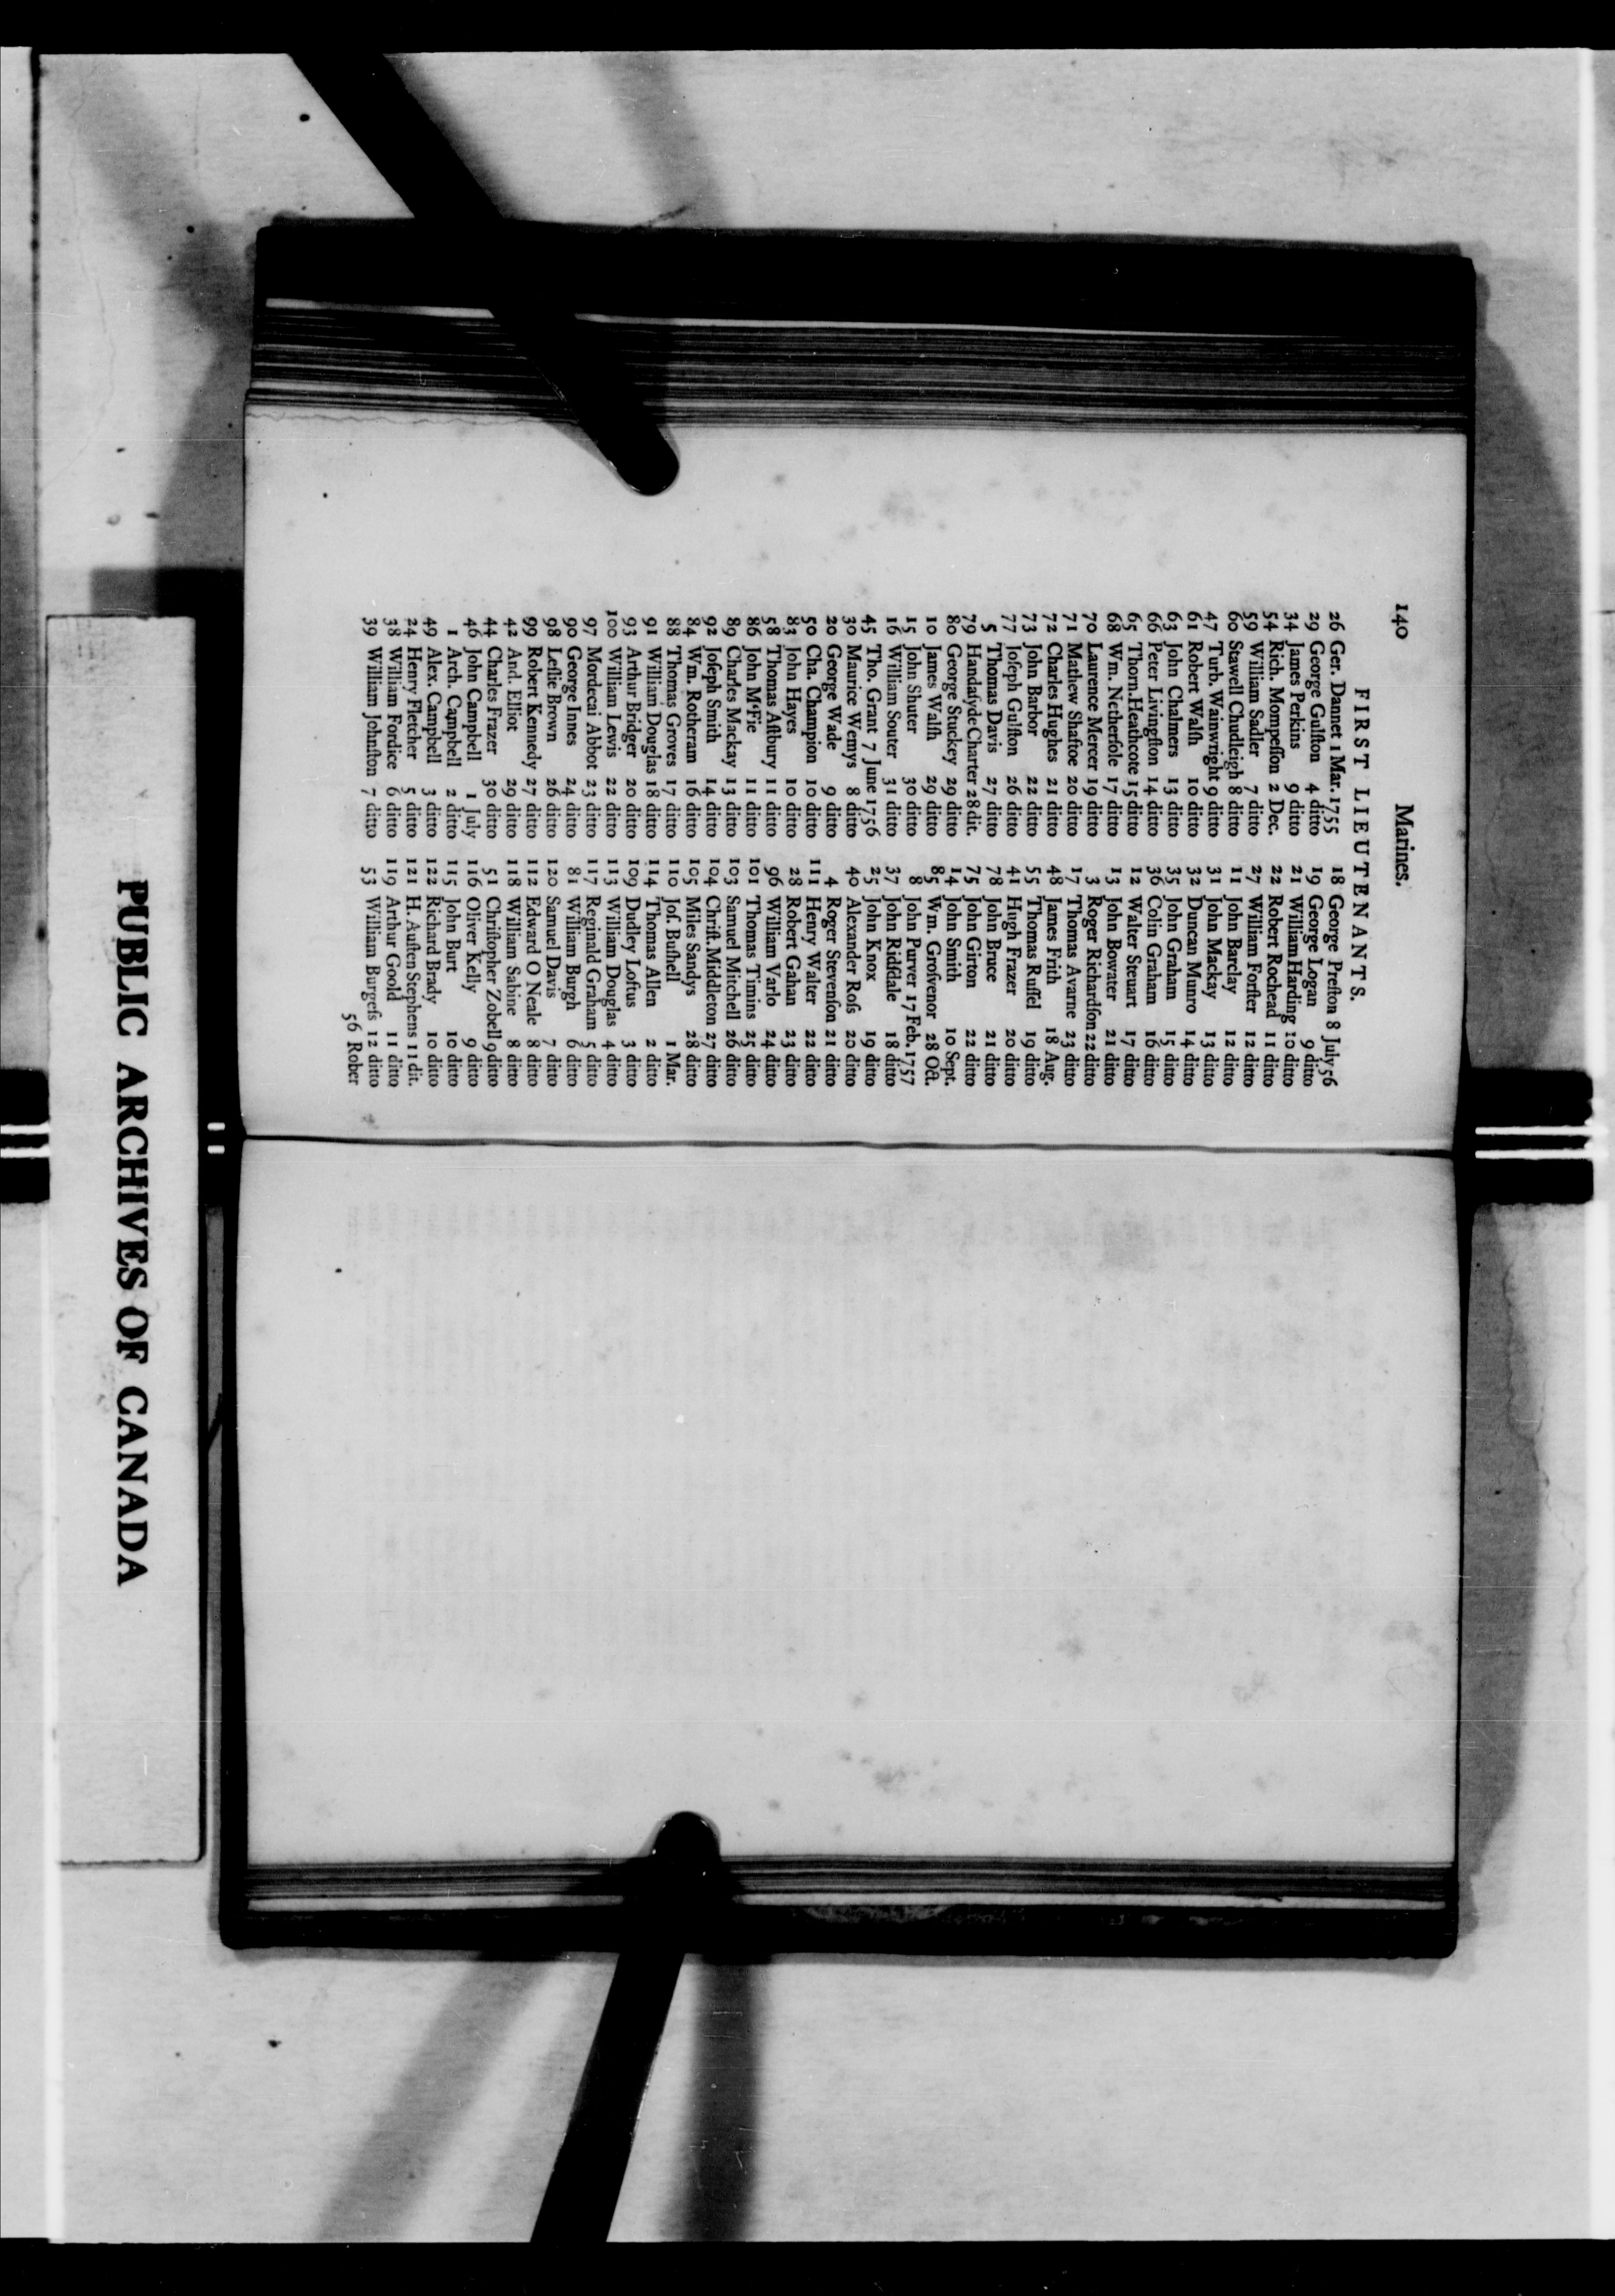 140
Marines.
FIRST LIEUTENANTS.
26 Ger. Dannet 1 Mar. 1755
29 George Gulſton 4 ditto
34 James Perkins 9 ditto
54 Rich. Mompeſſon 2 Dec.
59 William Sadler 7 ditto
60 Stawell Chudleigh 8 ditto
47 Turb. Wainwright 9 ditto
61 Robert Walſh 10 ditto
63 John Chalmers 13 ditto
66 Peter Livingſton 14 ditto
65 Thorn. Heathcote 15 ditto
68 Wm. Netherſole 17 ditto
70 Laurence Mercer 19 ditto
71 Mathew Shaftoe 20 ditto
72 Charles Hughes 21 ditto
73 John Barbor 22 ditto
77 Joſeph Gulſton 26 ditto
5 Thomas Davis 27 ditto
79 Handaſyde Charter 28 dit.
80 George Stuckey 29 ditto
10 James Walſh 29 ditto
15 John Shuter 30 ditto
16 William Souter 31 ditto
45 Tho. Grant 7 June 1756
30 Maurice Wemys 8 ditto
20 George Wade 9 ditto
50 Cha. Champion 10 ditto
83 John Hayes 10 ditto
58 Thomas Aſtbury 11 ditto
86 John McFie 11 ditto
89 Charles Mackay 13 ditto
92 Joſeph Smith 14 ditto
84 Wm. Rotheram 16 ditto
88 Thomas Groves 17 ditto
91 William Douglas 18 ditto
93 Arthur Bridger 20 ditto
100 William Lewis 22 ditto
97 Mordecai Abbot 23 ditto
90 George Innes 24 ditto
98 Leſlie Brown 26 ditto
99 Robert Kennedy 27 ditto
42 And. Elliot 29 ditto
44 Charles Frazer 30 ditto
46 John Campbell 1 July
1 Arch. Campbell 2 ditto
49 Alex. Campbell 3 ditto
24 Henry Fletcher 5 ditto
38 William Fordice 6 ditto
39 William Johnſton 7 ditto
18 George Preſton 8 July 56
19 George Logan 9 ditto
21 William Harding 10 ditto
22 Robert Rochead 11 ditto
27 William Forſter 12 ditto
11 John Barclay 12 ditto
31 John Mackay 13 ditto
32 Duncan Munro 14 ditto
35 John Graham 15 ditto
36 Colin Graham 16 ditto
12 Walter Steuart 17 ditto
13 John Bowater 21 ditto
3 Roger Richardſon 22 ditto
17 Thomas Avarne 23 ditto
48 James Frith 18 Aug.
55 Thomas Ruſſel 19 ditto
41 Hugh Frazer 20 ditto
78 John Bruce 21 ditto
75 John Girton 22 ditto
14 John Smith 10 Sept.
85 Wm. Groſvenor 28 Oct.
8 John Purver 17 Feb. 1757
37 John Ridſdale 18 ditto
25 John Knox 19 ditto
40 Alexander Roſs 20 ditto
4 Roger Stevenſon 21 ditto
111 Henry Walter 22 ditto
28 Robert Gahan 23 ditto
96 William Varlo 24 ditto
101 Thomas Timins 25 ditto
103 Samuel Mitchell 26 ditto
104 Chriſt. Middleton 27 ditto
105 Miles Sandys 28 ditto
110 Joſ. Buſhell 1 Mar.
114 Thomas Allen 2 ditto
109 Dudley Loftus 3 ditto
113 William Douglas 4 ditto
117 Reginald Graham 5 ditto
81 William Burgh 6 ditto
120 Samuel Davis 7 ditto
112 Edward O Neale 8 ditto
118 William Sabine 8 ditto
51 Chriſtopher Zobell 9 ditto
116 Oliver Kelly 9 ditto
115 John Burt 10 ditto
122 Richard Brady 10 ditto
121 H. Auſten Stephens 11 dit.
119 Arthur Goold 11 ditto
53 William Burgeſs 12 ditto
56 Rober
PUBLIC ARCHIVES OF CANADA